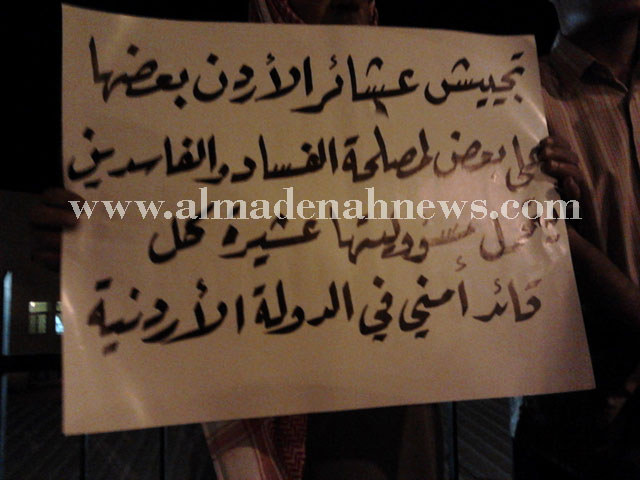 تجييش عشائر الأردن بعضها
على بعض لمصلحة الفساد والفاسدين
www.almadenahnews.com
مسؤوليتها عشيرة كل
قائد أمني في الدولة الأردنية